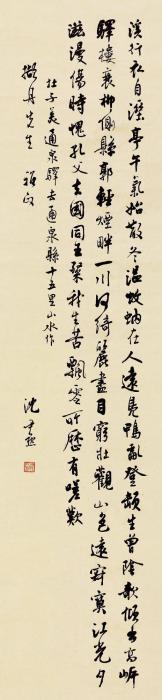 溪行衣自溼亭午氣始散冬溫蚊蚋在人遠鳧鴨亂登頓生曾陰欹傾出高岸
驛樓衰柳側縣郭輕煙畔一川何綺麗盡目窮壯觀山色遠寂寞江光夕
滋漫傷時愧孔父去國同王粲我生苦飄零所歷有嗟歎
杜子美通泉驛去通泉縣十五里山水作
擷丹先生 雅政
沈尹默